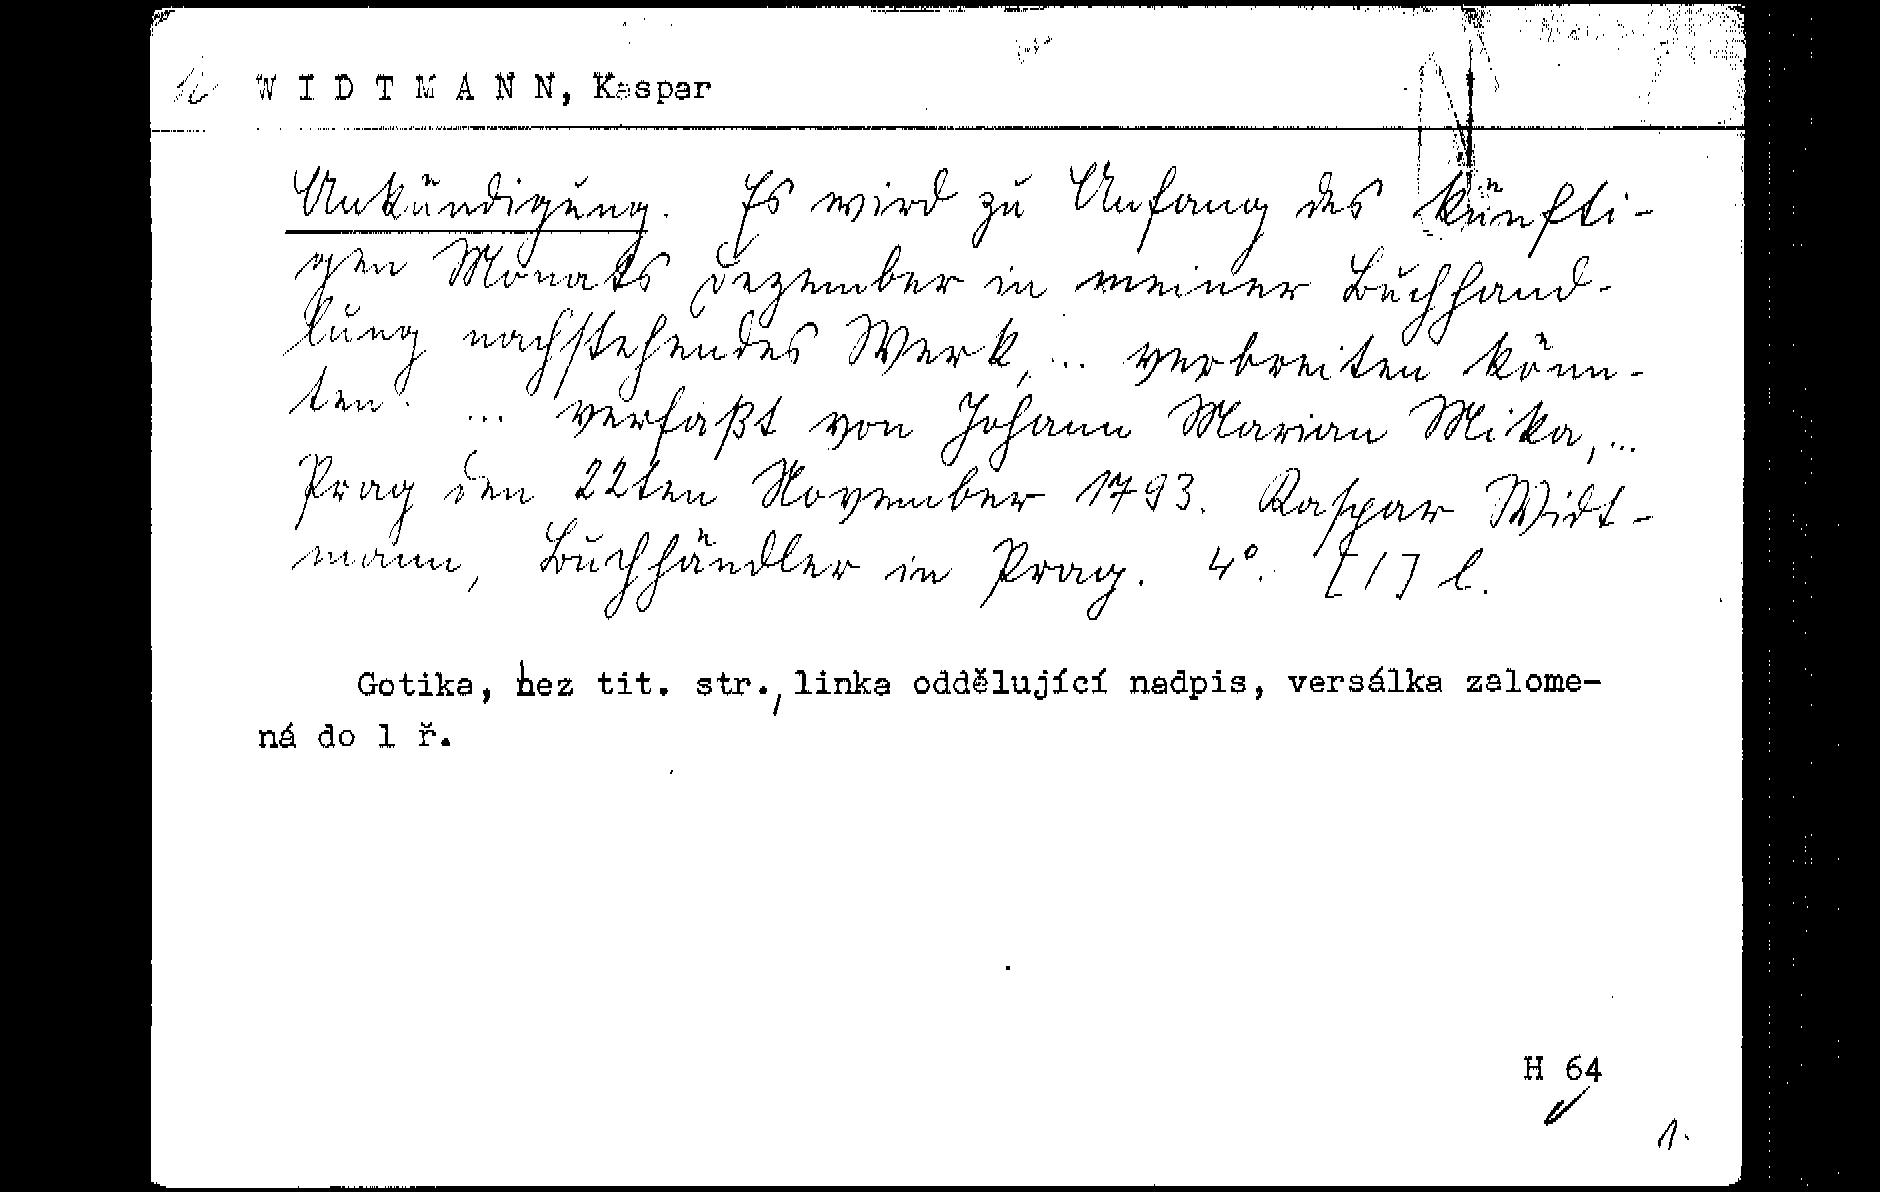 W I D T M A N N, Kaspar
Ankündigung. Es wird zu Anfang des künfti-
gen Monats Dezember in meiner Buchhand-
lung nachstehendes Werk, ... verbreiten könn-
ten. ... verfaßt von Johann Marian Mika, ...
Prag den 22ten November 1793. Kaspar Widt-
mann, Buchhändler in Prag. 4°. [1] l.
Gotika, bez tit. str., linka oddělující nadpis, versálka zalome-
ná do 1 ř.
H 64
1.